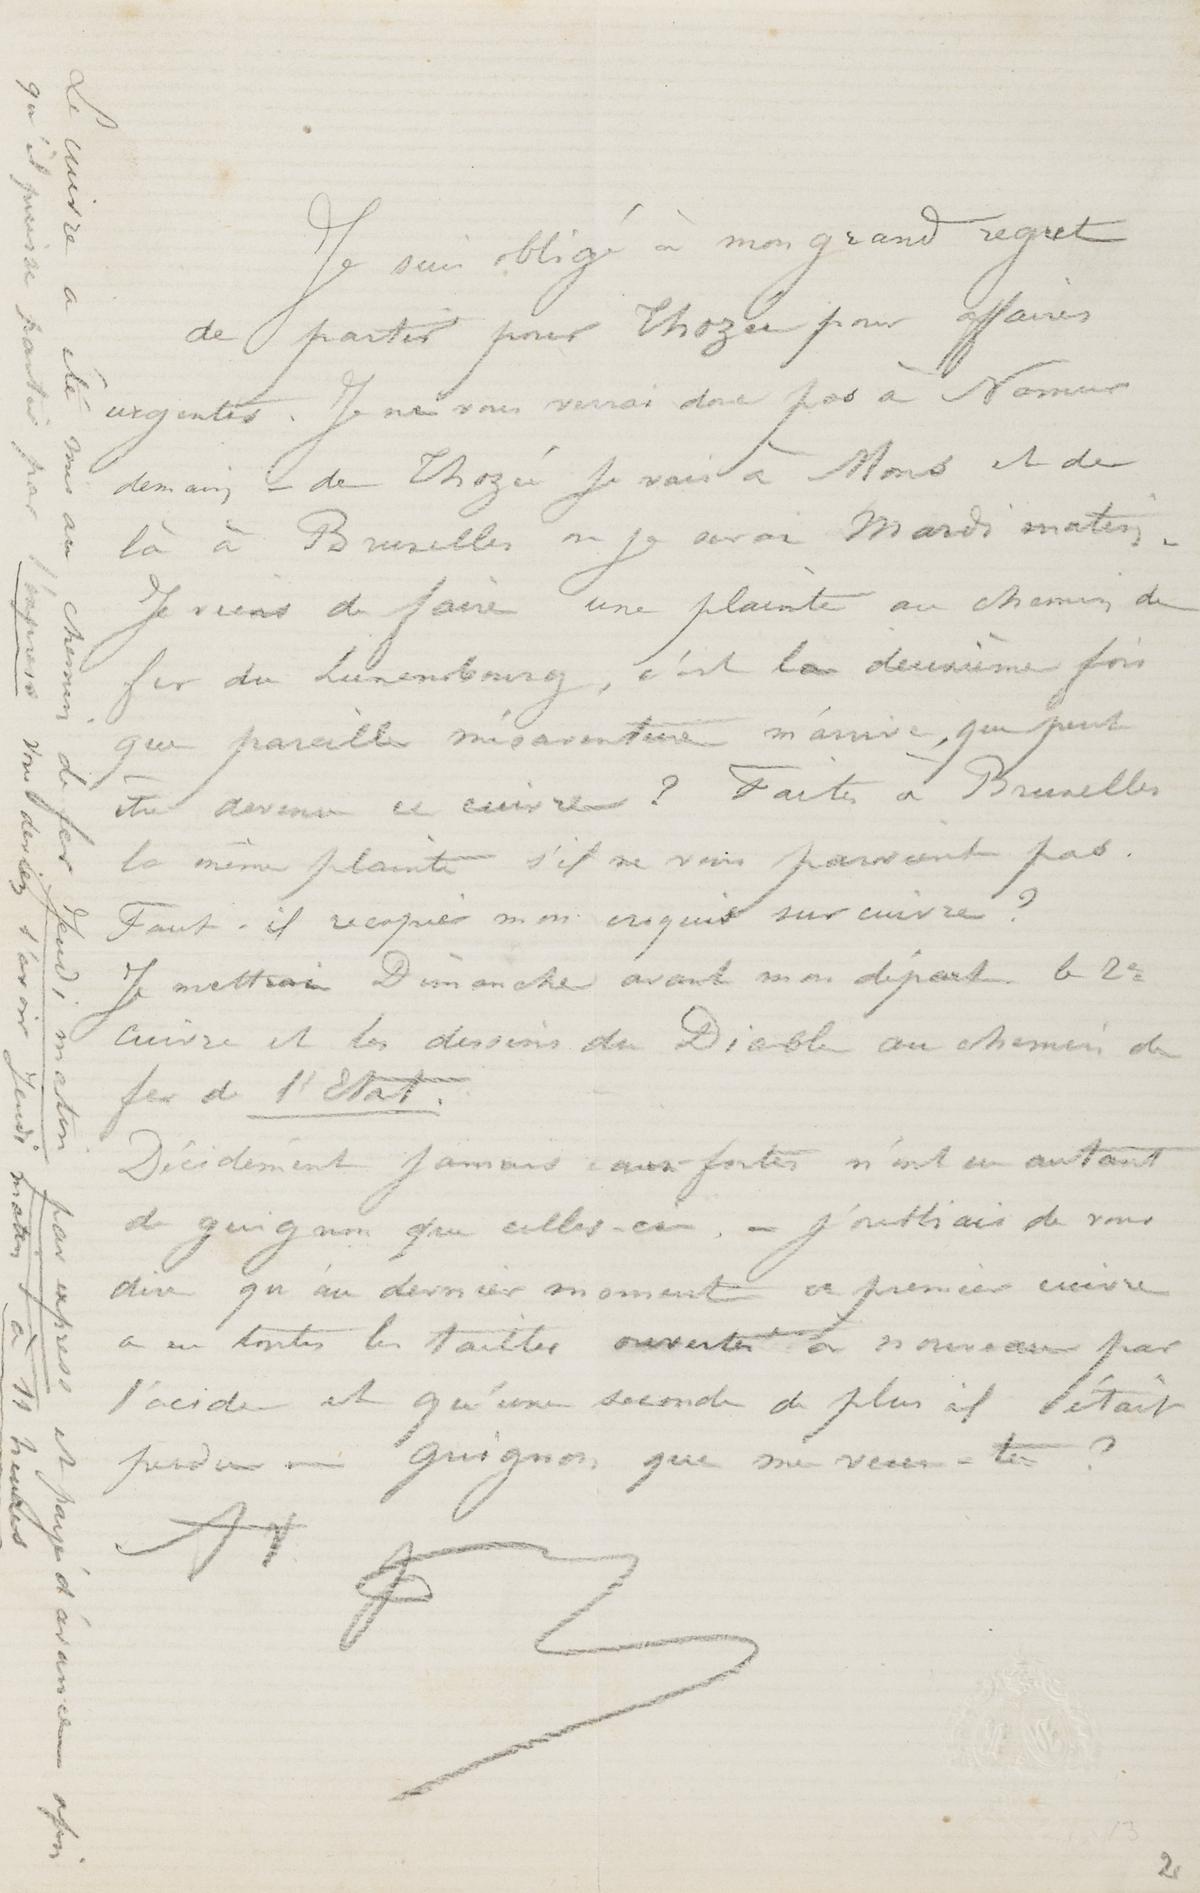 Je suis obligé à mon grand regret
de partir pour Thozée pour affaires
urgentes. Je ne vous verrai donc pas à Namur
demain – de Thozée je vais à Mons et de
là à Bruxelles ou je serai Mardi matin.
Je viens de faire une plainte au chemin de
fer du Luxembourg, c'est la deuxième fois
que pareille mésaventure m'arrive, que peut
être devenu ce cuivre ? Faites à Bruxelles
la même plainte s'il ne vous parvient pas.
Faut-il recopier mon croquis sur cuivre ?
Je mettrai Dimanche avant mon départ le 2e
cuivre et les dessins du Diable au chemin de
fer de l'Etat.
Décidément jamais eaux-fortes n'ont eu autant
de guignon que celles-ci. – J'oubliais de vous
dire qu'au dernier moment ce premier cuivre
a eu toutes les tailles ouvertes à nouveau par
l'acide et qu'une seconde de plus il était
perdu — guignon que me veux-tu ?
Le cuivre a été mis au chemin de fer Jeudi matin par express et payé d'avance afin
qu'il puisse partir par l'express vous deviez l'avoir Jeudi matin à 11 heures
2